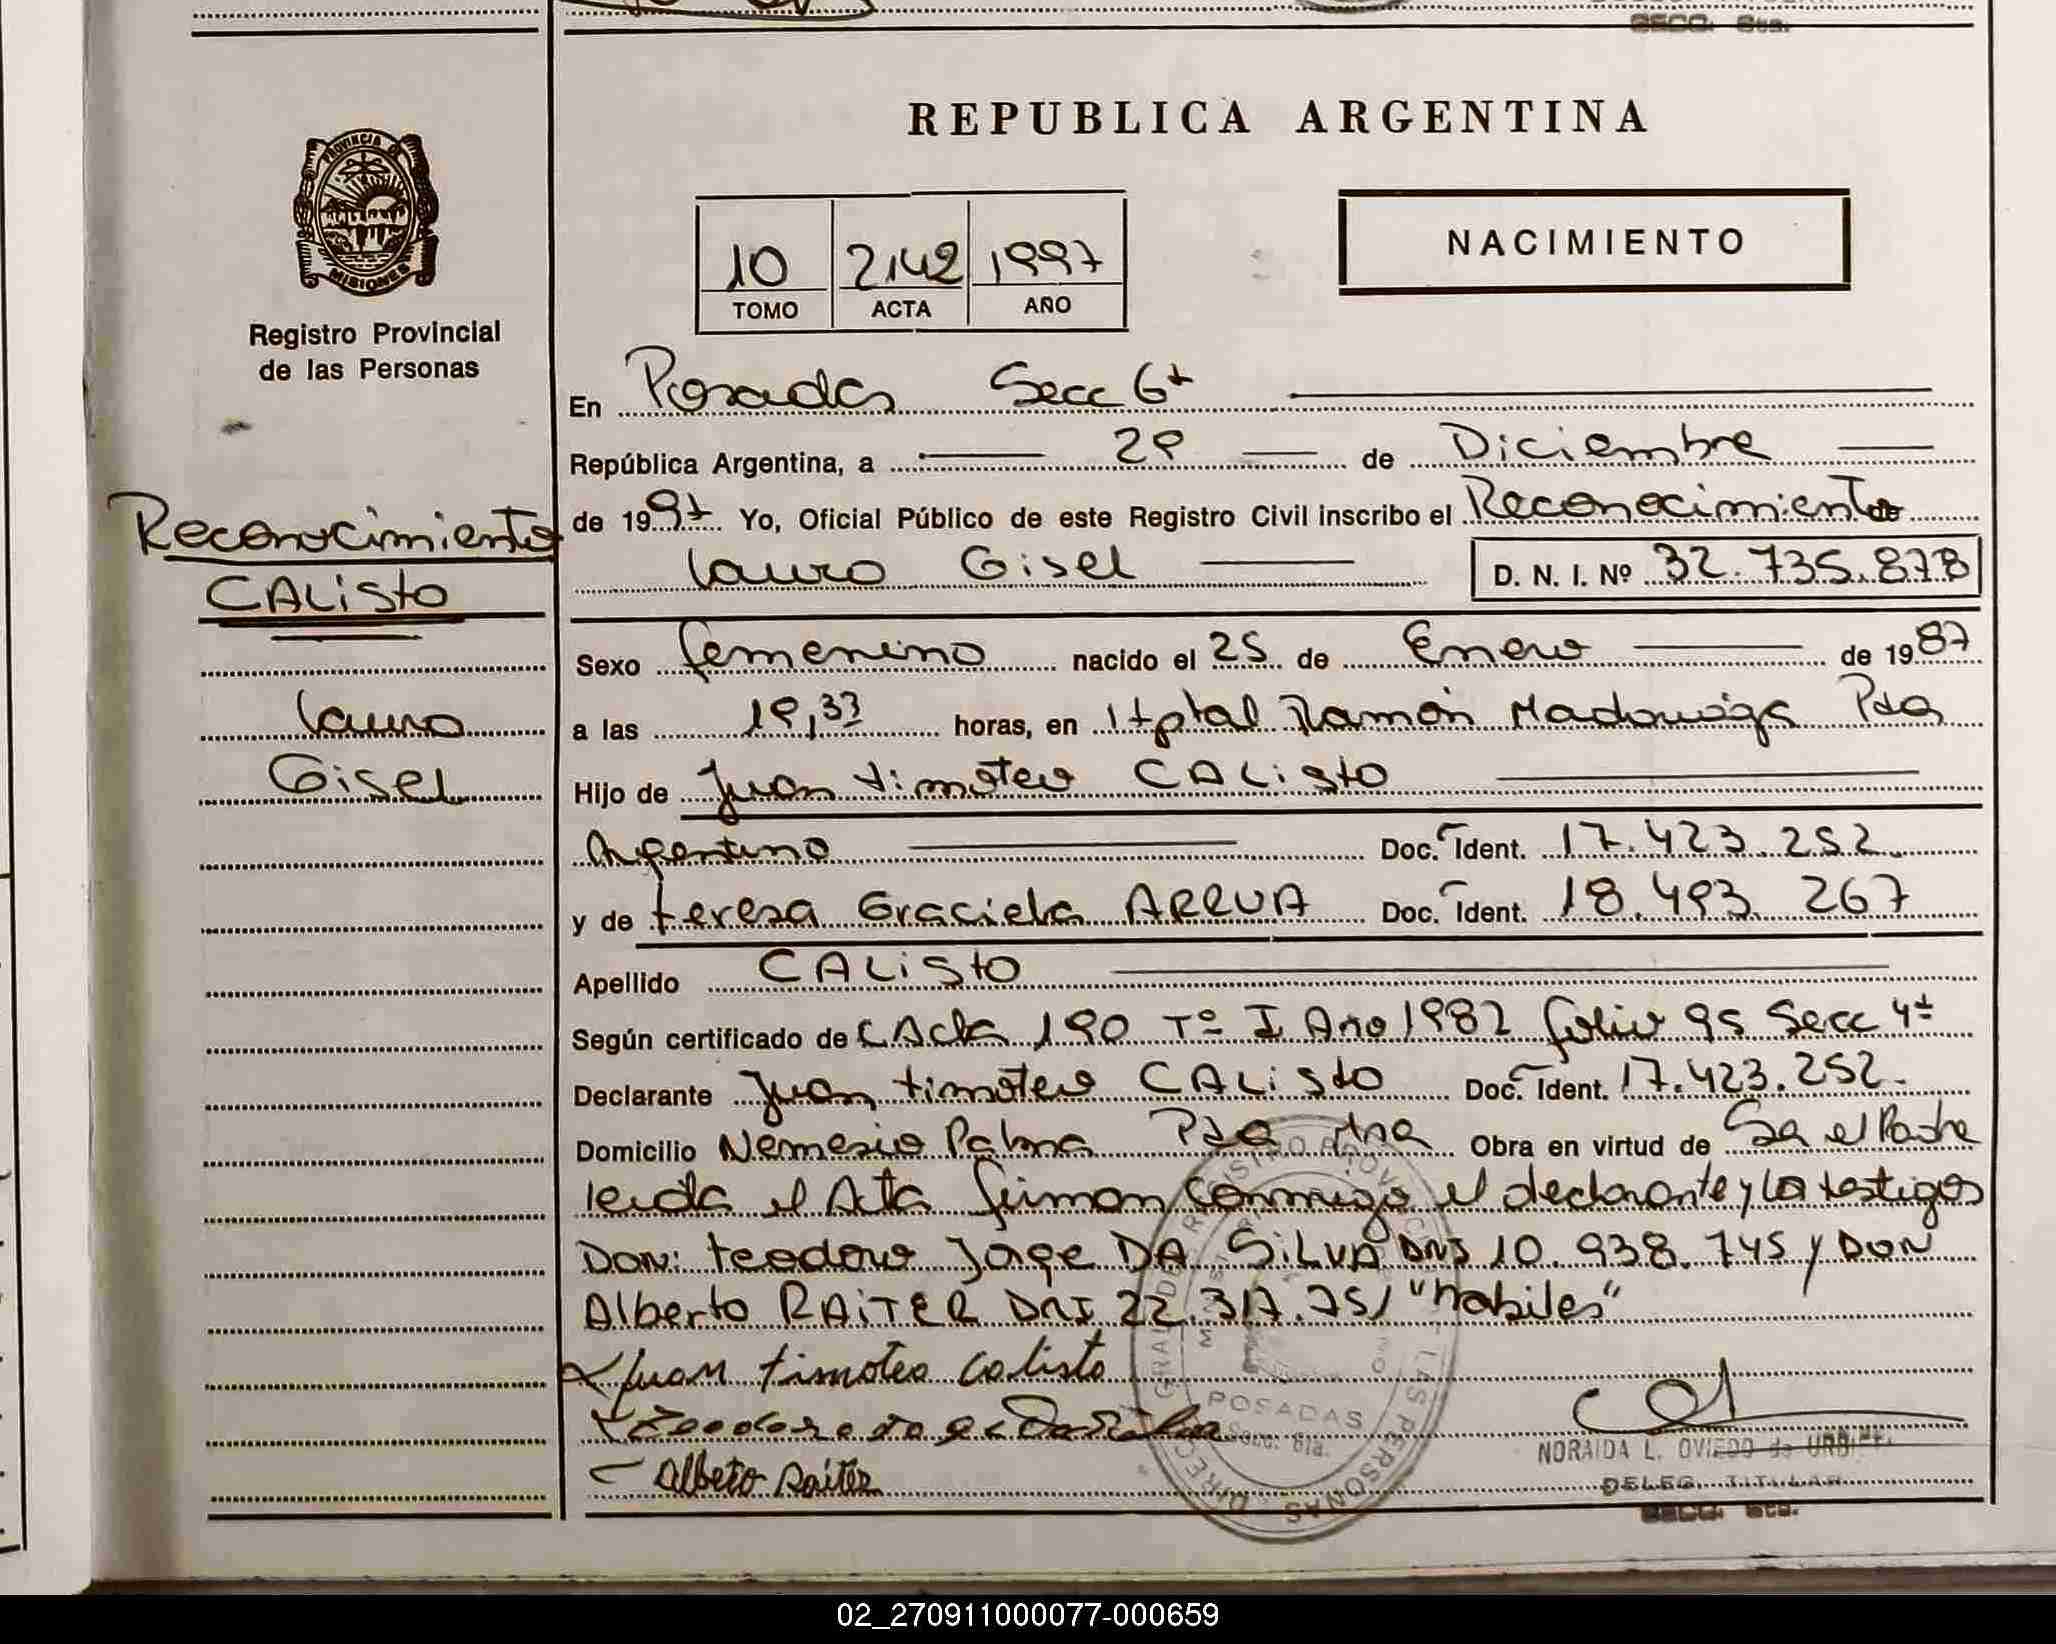 Secc. 6ta.
PROVINCIA DE
MISIONES
Registro Provincial
de las Personas
Reconocimiento
CAListo
Laura
Gisel
REPUBLICA ARGENTINA
10 2142 1997
TOMO ACTA AÑO
NACIMIENTO
En Posadas Secc 6ta
República Argentina, a 29 de Diciembre
de 1997 Yo, Oficial Público de este Registro Civil inscribo el Reconocimiento de
Laura Gisel D. N. I. Nº 32.735.878
Sexo femenino nacido el 25 de Enero de 1987
a las 19,33 horas, en Hptal Ramón Madariaga Pdas
Hijo de Juan timoteo CAListo
Argentino Doc. Ident. 17.423.252
y de teresa Graciela ARRUA Doc. Ident. 18.493.267
Apellido CAListo
Según certificado de Acta 190 Tº I Año 1987 folio 95 Secc 4ta
Declarante Juan timoteo CAListo Doc. Ident. 17.423.252.
Domicilio Nemesio Palma Pdas Mnes Obra en virtud de Ser el Padre
leida el Acta firman conmigo el declarante y los testigos
Don: teodoro Jorge DA SiLVA DNI 10.938.745 y DON
Alberto RAiTER DNI 22.317.751 "habiles"
Juan timoteo Calisto
teodoro Jorge Da Silva
Alberto Raiter
DIRECC. GRAL. DEL REGISTRO PROVINCIAL DE LAS PERSONAS
MISIONES
POSADAS
Secc. 6ta.
NORAIDA L. OVIEDO de
DELEG. TITULAR
SECC. 6ta.
02_270911000077-000659